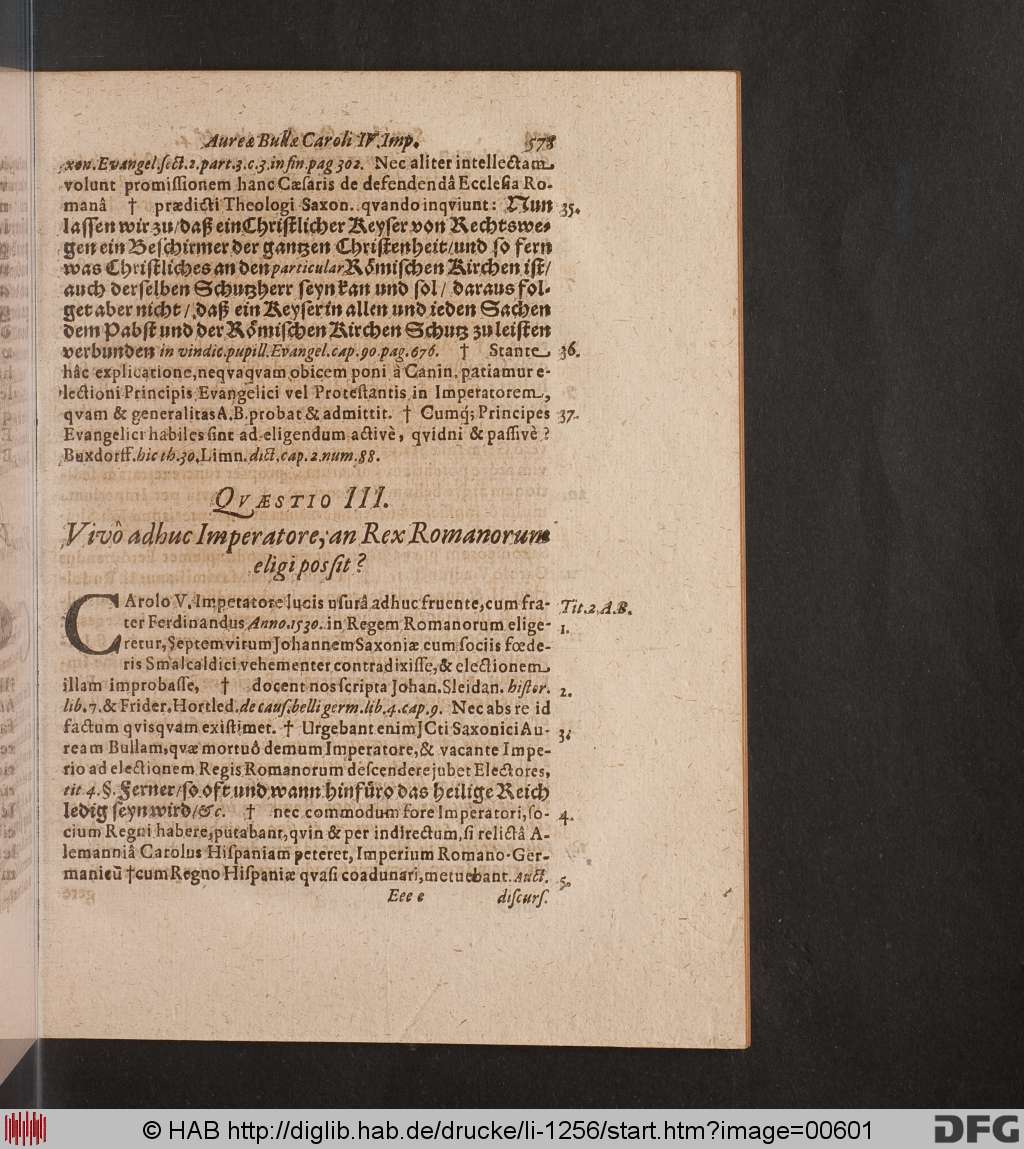 Aureæ Bullæ Caroli IV. Imp. 578
xon. Evangel. sect. 2. part. 3. c. 3. in fin. pag 302. Nec aliter intellectam
volunt promissionem hanc Cæsaris de defendendâ Ecclesia Ro-
manâ † prædicti Theologi Saxon. qvando inqviunt: Nun 35.
lassen wir zu/ daß ein Christlicher Keyser von Rechtswe-
gen ein Beschirmer der gantzen Christenheit/ und so fern
was Christliches an den particular Römischen Kirchen ist/
auch derselben Schutzherr seyn kan und sol/ daraus fol-
get aber nicht/ daß ein Keyser in allen und ieden Sachen
dem Pabst und der Römischen Kirchen Schutz zu leisten
verbunden in vindic. pupill. Evangel. cap. 90. pag. 676. † Stante 36.
hâc explicatione, neqvaqvam obicem poni à Canin. patiamur e-
lectioni Principis Evangelici vel Protestantis in Imperatorem,
qvam & generalitas A. B. probat & admittit. † Cumq; Principes 37.
Evangelici habiles sint ad eligendum activè, qvidni & passivè?
Buxdorff. hic th. 30. Limn. dict. cap. 2. num. 88.
QVÆSTIO III.
Vivô adhuc Imperatore, an Rex Romanorum
eligi possit?
CArolo V. Imperatore lucis usurâ adhuc fruente, cum fra- Tit. 2. A. B.
ter Ferdinandus Anno. 1530. in Regem Romanorum elige- 1.
retur, Septemvirum Johannem Saxoniæ cum sociis fœde-
ris Smalcaldici vehementer contradixisse, & electionem
illam improbasse, † docent nos scripta Johan. Sleidan. histor. 2.
lib. 7. & Frider. Hortled. de caus. belli germ. lib. 4. cap. 9. Nec abs re id
factum qvisqvam existimet. † Urgebant enim JCti Saxonici Au- 3.
ream Bullam, qvæ mortuô demum Imperatore, & vacante Impe-
rio ad electionem Regis Romanorum descendere jubet Electores,
tit 4. §. Ferner/ so oft und wann hinfüro das heilige Reich
ledig seyn wird/ &c. † nec commodum fore Imperatori, so- 4.
cium Regni habere, putabant, qvin & per indirectum, si relictâ A-
lemanniâ Carolus Hispaniam peteret, Imperium Romano-Ger-
manicū † cum Regno Hispaniæ qvasi coadunari, metuebant. Auct. 5.
Eee e discurs.
© HAB http://diglib.hab.de/drucke/li-1256/start.htm?image=00601
DFG